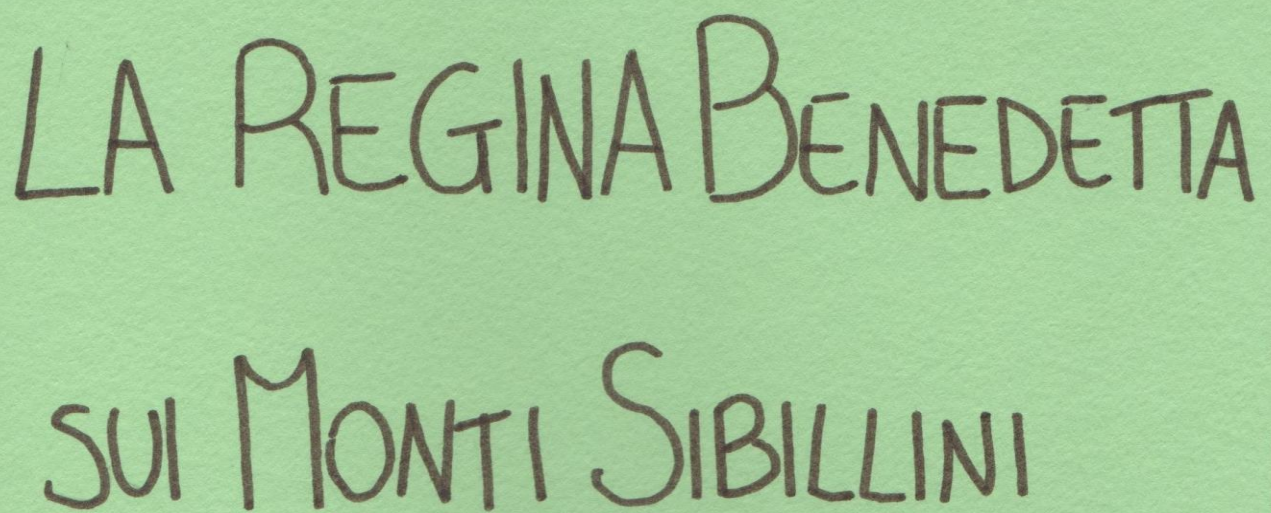 LA REGINA BENEDETTA
SUI MONTI SIBILLINI